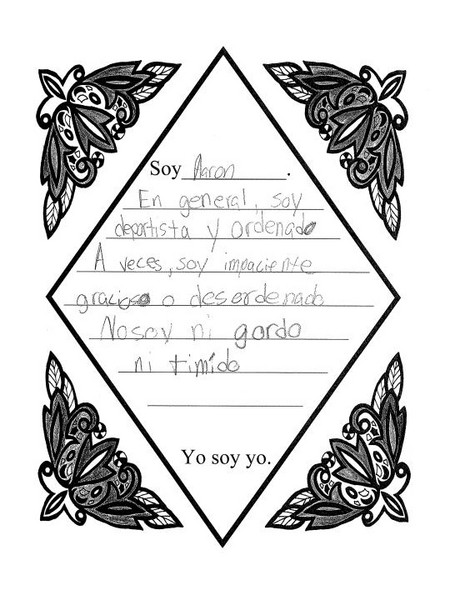 Soy Aaron.
En general, soy
deportista y ordenado
A veces, soy impaciente
gracioso o desordenado
No soy ni gordo
ni timido
Yo soy yo.